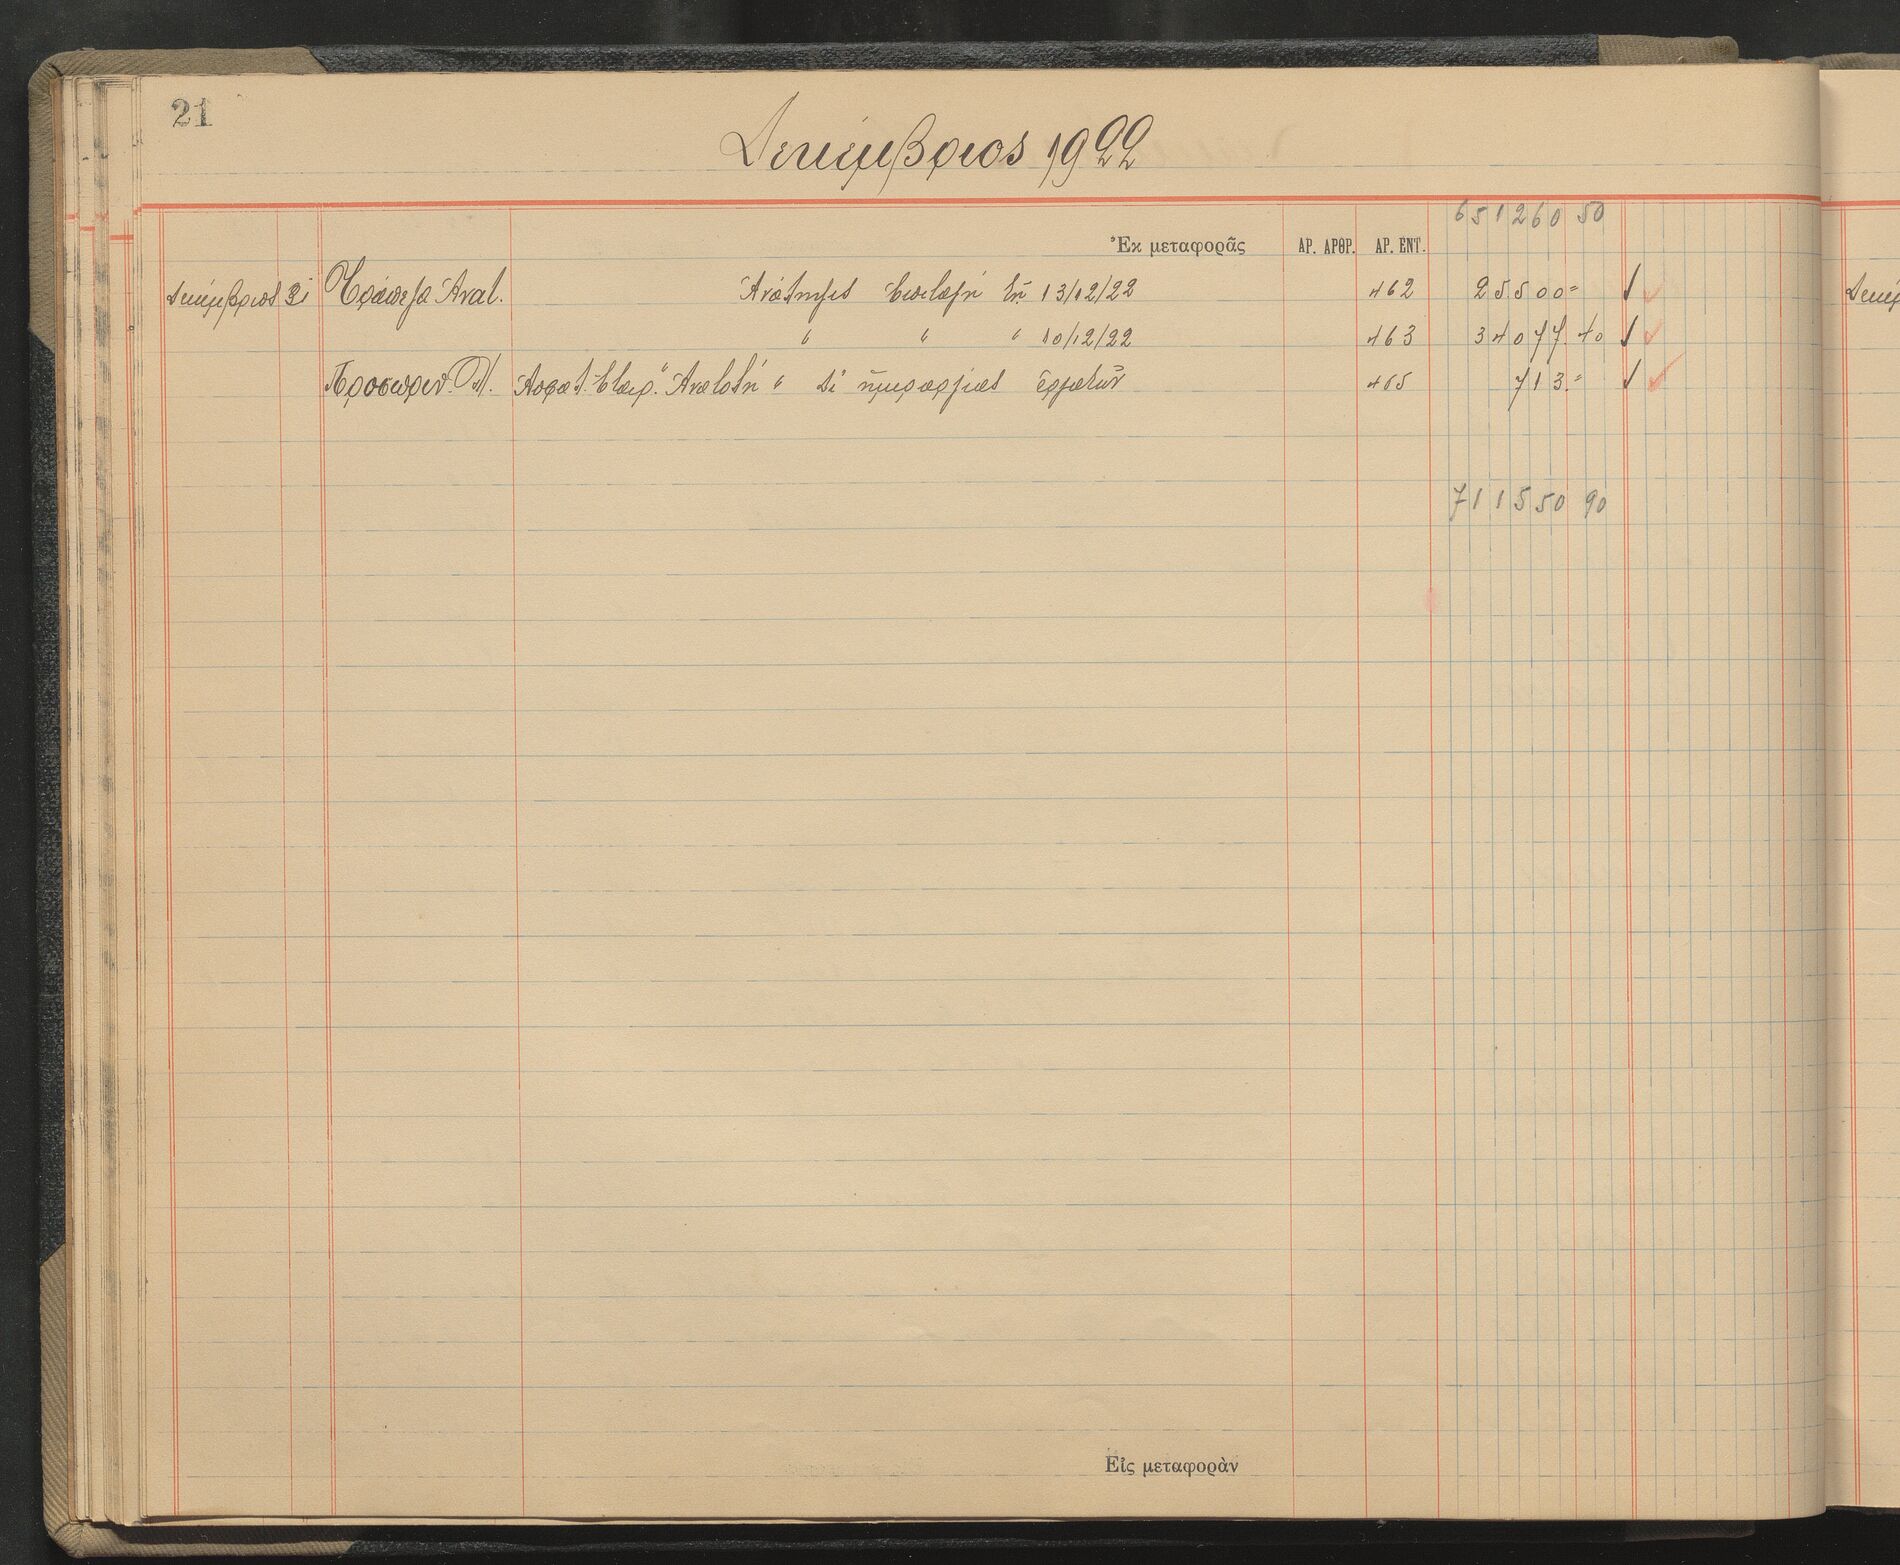 21
Δεκέμβριος 1922
651260 50
Ἐκ μεταφορᾶς ΑΡ. ΑΡΘΡ. ΑΡ. ΕΝΤ.
Δεκέμβριος 31 Τράπεζα Ανατ. Ανάληψις επιταγή τῇ 13/12/22 462 25500 "
" " " 10/12/22 463 34077 40
Προσωριν. Λ/. Ασφαλ. Εταιρ. "Ανατολή" δι' ημερομίσθια εργατῶν 465 713. "
711550 90
Εἰς μεταφορὰν
Δεκέμ